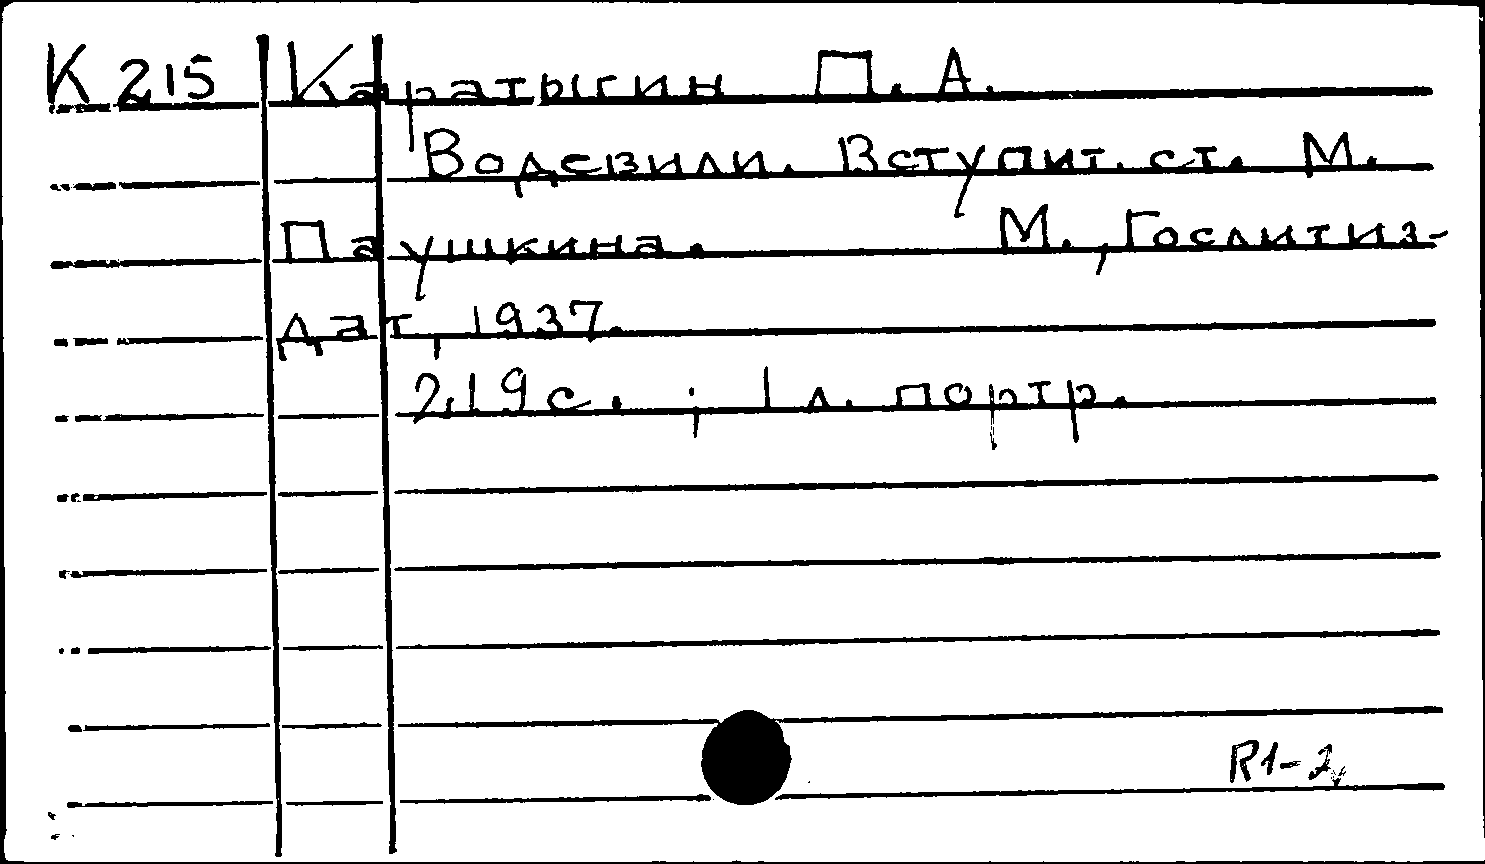 К 215 Каратыгин П. А.
Водевили. Вступит. ст. М.
Паушкина. М., Гослитиз-
дат, 1937.
219 с. ; 1 л. портр.
R1-2